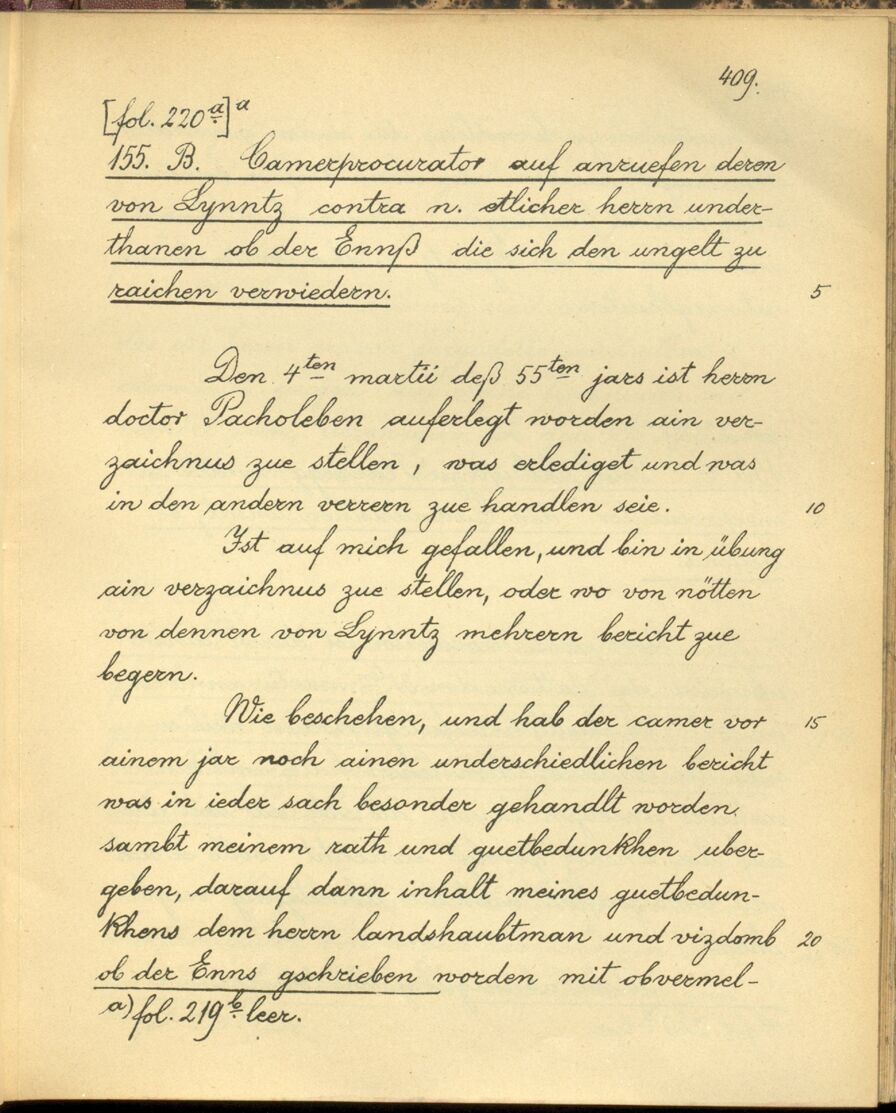 409.
[fol. 220a]a
155. B. Camerprocurator auf anruefen deren
von Lynntz contra n. etlicher herrn under-
thanen ob der Ennß die sich den ungelt zu
raichen verwiedern. 5
Den 4ten martii deß 55ten jars ist herrn
doctor Pacholeben auferlegt worden ain ver-
zaichnus zue stellen, was erlediget und was
in den andern verrern zue handlen seie. 10
Ist auf mich gefallen, und bin in übung
ain verzaichnus zue stellen, oder wo von nötten
von dennen von Lynntz mehrern bericht zue
begern.
Wie beschehen, und hab der camer vor 15
ainem jar noch ainen underschiedlichen bericht
was in ieder sach besonder gehandlt worden,
sambt meinem rath und guetbedunkhen uber-
geben, darauf dann inhalt meines guetbedun-
khens dem herrn landshaubtman und vizdomb 20
ob der Enns gschrieben worden mit obvermel-
a) fol. 219b leer.